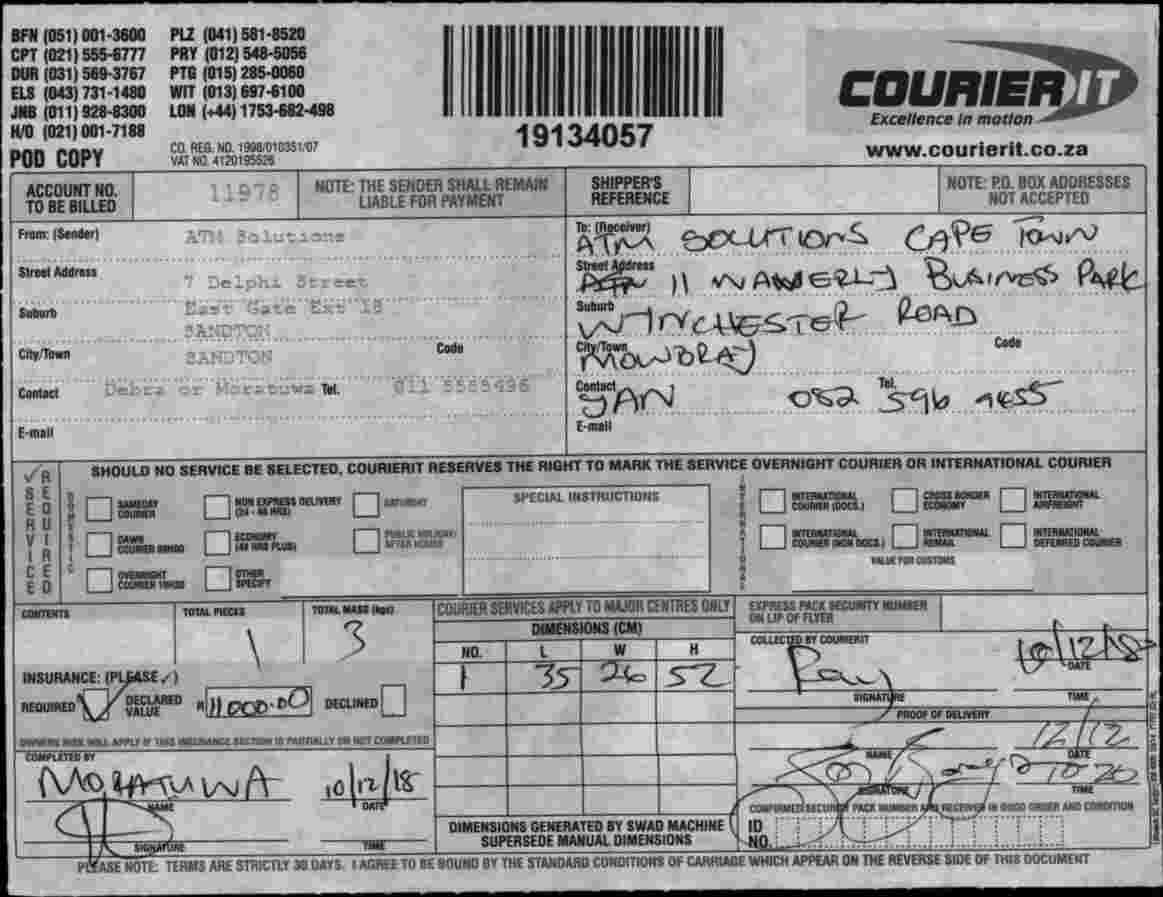 BFN (051) 001-3600 PLZ (041) 581-8520
CPT (021) 555-6777 PRY (012) 548-5056
DUR (031) 569-3767 PTG (015) 285-0060
ELS (043) 731-1480 WIT (013) 697-6100
JNB (011) 928-8300 LON (+44) 1753-682-498
H/O (021) 001-7188
POD COPY
CO. REG. NO. 1998/010351/07
VAT NO. 4120195526
19134057
COURIER IT
Excellence in motion
www.courierit.co.za
ACCOUNT NO. TO BE BILLED 11978
NOTE: THE SENDER SHALL REMAIN LIABLE FOR PAYMENT
SHIPPER'S REFERENCE
NOTE: P.O. BOX ADDRESSES NOT ACCEPTED
From: (Sender) ATM Solutions
Street Address 7 Delphi Street
Suburb East Gate Ext 18
SANDTON
City/Town SANDTON Code
Contact Debra or Moratuwa Tel. 011 5555496
E-mail
To: (Receiver) ATM SOLUTIONS CAPE TOWN
Street Address 11 WAVERLY BUSINESS PARK
Suburb WINCHESTER ROAD
City/Town MOWBRAY Code
Contact YAN Tel. 082 596 9855
E-mail
SERVICE REQUIRED
SHOULD NO SERVICE BE SELECTED, COURIERIT RESERVES THE RIGHT TO MARK THE SERVICE OVERNIGHT COURIER OR INTERNATIONAL COURIER
DOMESTIC
SAMEDAY COURIER
NON EXPRESS DELIVERY (24 - 48 HRS)
SATURDAY
DAWN COURIER 09H00
ECONOMY (48 HRS PLUS)
PUBLIC HOLIDAY/ AFTER HOURS
OVERNIGHT COURIER 10H30
OTHER SPECIFY
SPECIAL INSTRUCTIONS
INTERNATIONAL
INTERNATIONAL COURIER (DOCS.)
CROSS BORDER ECONOMY
INTERNATIONAL AIRFREIGHT
INTERNATIONAL COURIER (NON DOCS.)
INTERNATIONAL REMAIL
INTERNATIONAL DEFERRED COURIER
VALUE FOR CUSTOMS
CONTENTS
TOTAL PIECES 1
TOTAL MASS (kgs) 3
INSURANCE: (PLEASE ✓)
REQUIRED ✓ DECLARED VALUE R 11000.00 DECLINED
OWNERS RISK WILL APPLY IF THIS INSURANCE SECTION IS PARTIALLY OR NOT COMPLETED
COMPLETED BY
MORATUWA 10/12/18
NAME DATE
SIGNATURE TIME
COURIER SERVICES APPLY TO MAJOR CENTRES ONLY
DIMENSIONS (CM)
NO. L W H
1 35 26 52
DIMENSIONS GENERATED BY SWAD MACHINE SUPERSEDE MANUAL DIMENSIONS
EXPRESS PACK SECURITY NUMBER ON LIP OF FLYER
COLLECTED BY COURIERIT
10/12/18
DATE
SIGNATURE TIME
PROOF OF DELIVERY
12/12
NAME DATE
SIGNATURE TIME
CONFIRMED SECURITY PACK NUMBER AND RECEIVED IN GOOD ORDER AND CONDITION
ID NO.
PLEASE NOTE: TERMS ARE STRICTLY 30 DAYS. I AGREE TO BE BOUND BY THE STANDARD CONDITIONS OF CARRIAGE WHICH APPEAR ON THE REVERSE SIDE OF THIS DOCUMENT